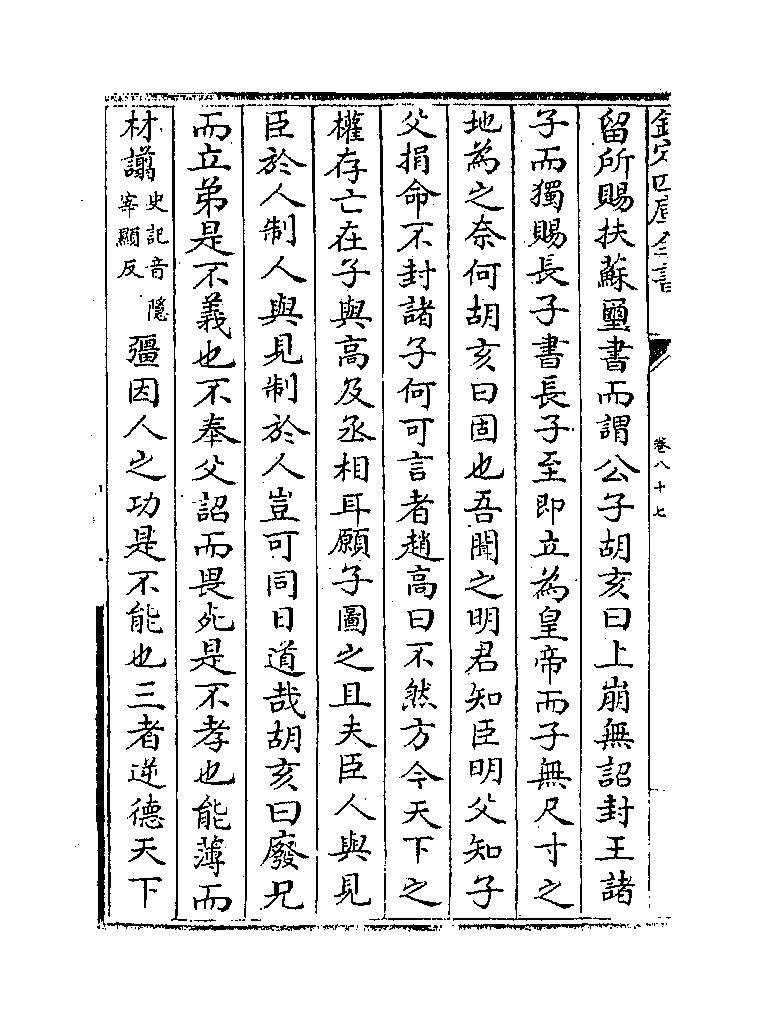 欽定四庫全書
卷八十七
留所賜扶蘇璽書而謂公子胡亥曰上崩無詔封王諸
子而獨賜長子書長子至即立為皇帝而子無尺寸之
地為之奈何胡亥曰固也吾聞之明君知臣明父知子
父捐命不封諸子何可言者趙高曰不然方今天下之
權存亡在子與高及丞相耳願子圖之且夫臣人與見
臣於人制人與見制於人豈可同日道哉胡亥曰廢兄
而立弟是不義也不奉父詔而畏死是不孝也能薄而
材譾史記音隱宰顯反彊因人之功是不能也三者逆德天下